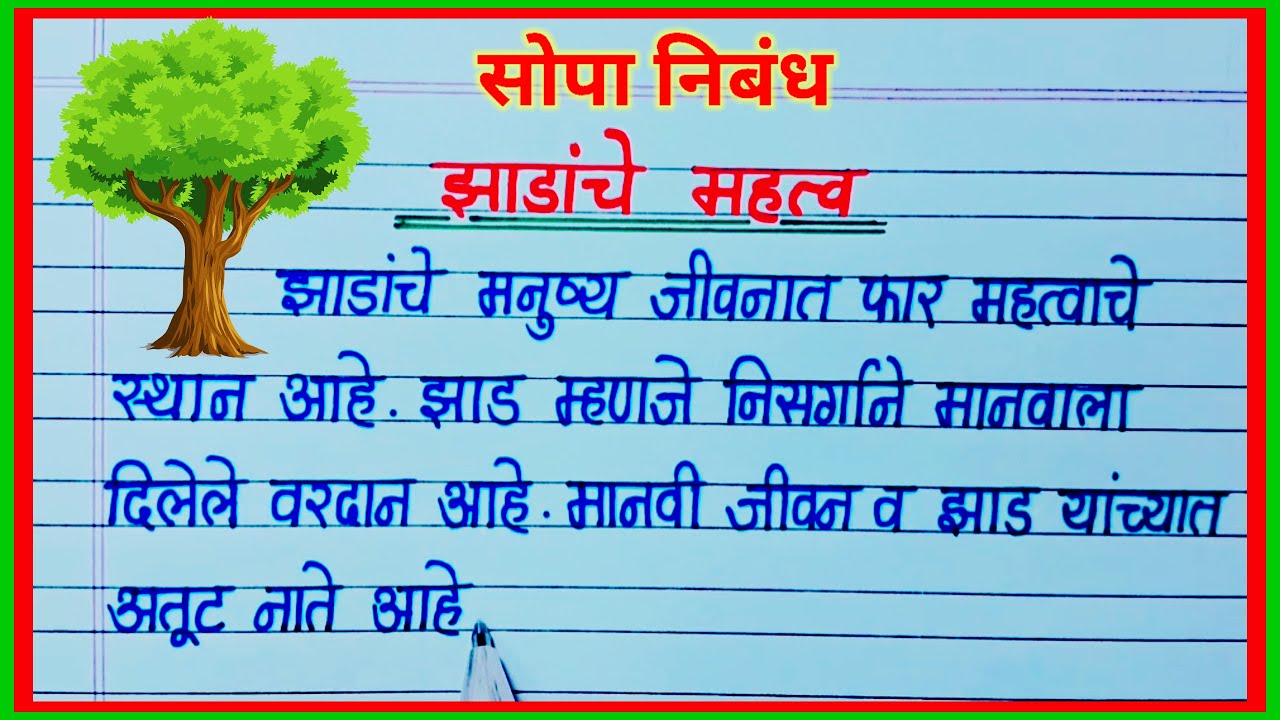 सोपा निबंध
झाडांचे महत्व
झाडांचे मनुष्य जीवनात फार महत्वाचे
स्थान आहे. झाड म्हणजे निसर्गाने मानवाला
दिलेले वरदान आहे. मानवी जीवन व झाड यांच्यात
अतूट नाते आहे